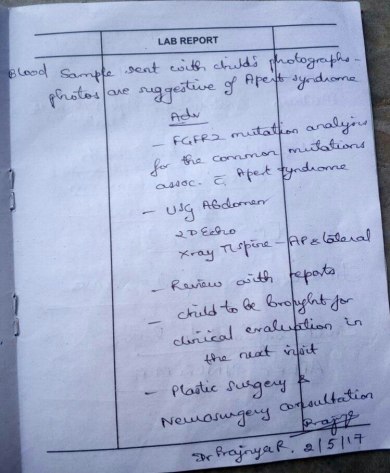 LAB REPORT
Blood Sample sent with child's photographs -
photos are suggestive of Apert syndrome
Adv
- FGFR2 mutation analysis
for the common mutations
assoc. c̄ Apert syndrome
- USG Abdomen
2D Echo
Xray TLspine - AP & lateral
- Review with reports
- child to be brought for
clinical evaluation in
the next visit
- Plastic surgery &
Neurosurgery consultation
Dr Prajnya R. 2/5/17